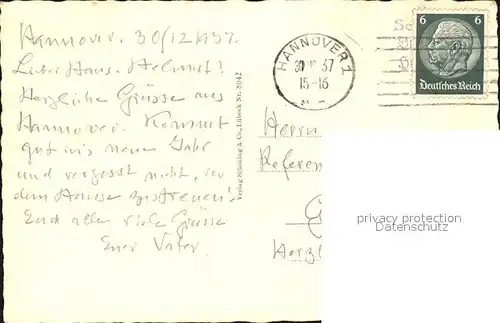 Hannover. 30/12 1937.
Lieber Hans-Helmut!
Herzliche Grüsse aus
Hannover. Kommt
gut ins neue Jahr
und vergesst nicht, vor
dem Hause zu streuen!
Euch allen viele Grüsse
Euer Vater.
Verlag Schöning & Co., Lübeck Nr.
HANNOVER 1
37
15-16
6 6
Deutsches Reich
Herrn
Referen
privacy protection
Datenschutz